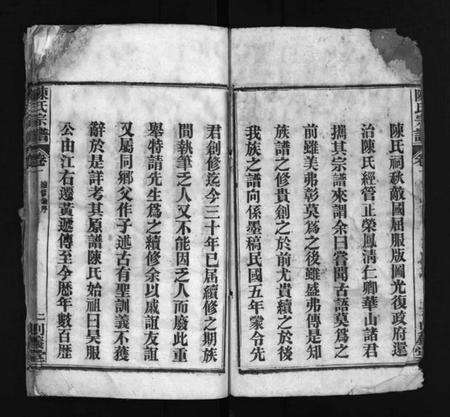 陳氏宗譜 卷一
陳氏祠秋敵國屈服版圖光復政府還
治陳氏經管正榮鳳清仁卿華山諸君
攜其宗譜來謂余曰嘗聞古語莫為之
前雖美弗彰莫為之後雖盛弗傳是知
族譜之修貴創之於前尤貴續之於後
我族之譜向係墨稿民國五年蒙令先
君創修迄今三十年已屆續修之期族
間執筆乏人又不能因乏人而廢此重
舉特請先生為之續修余以戚誼友誼
又屬同鄉父作子述古有聖訓義不獲
辭於是詳考其原譜陳氏始祖曰吳服
公由江右遷黃遞傳至今歷年數百歷
陳氏宗譜 卷一